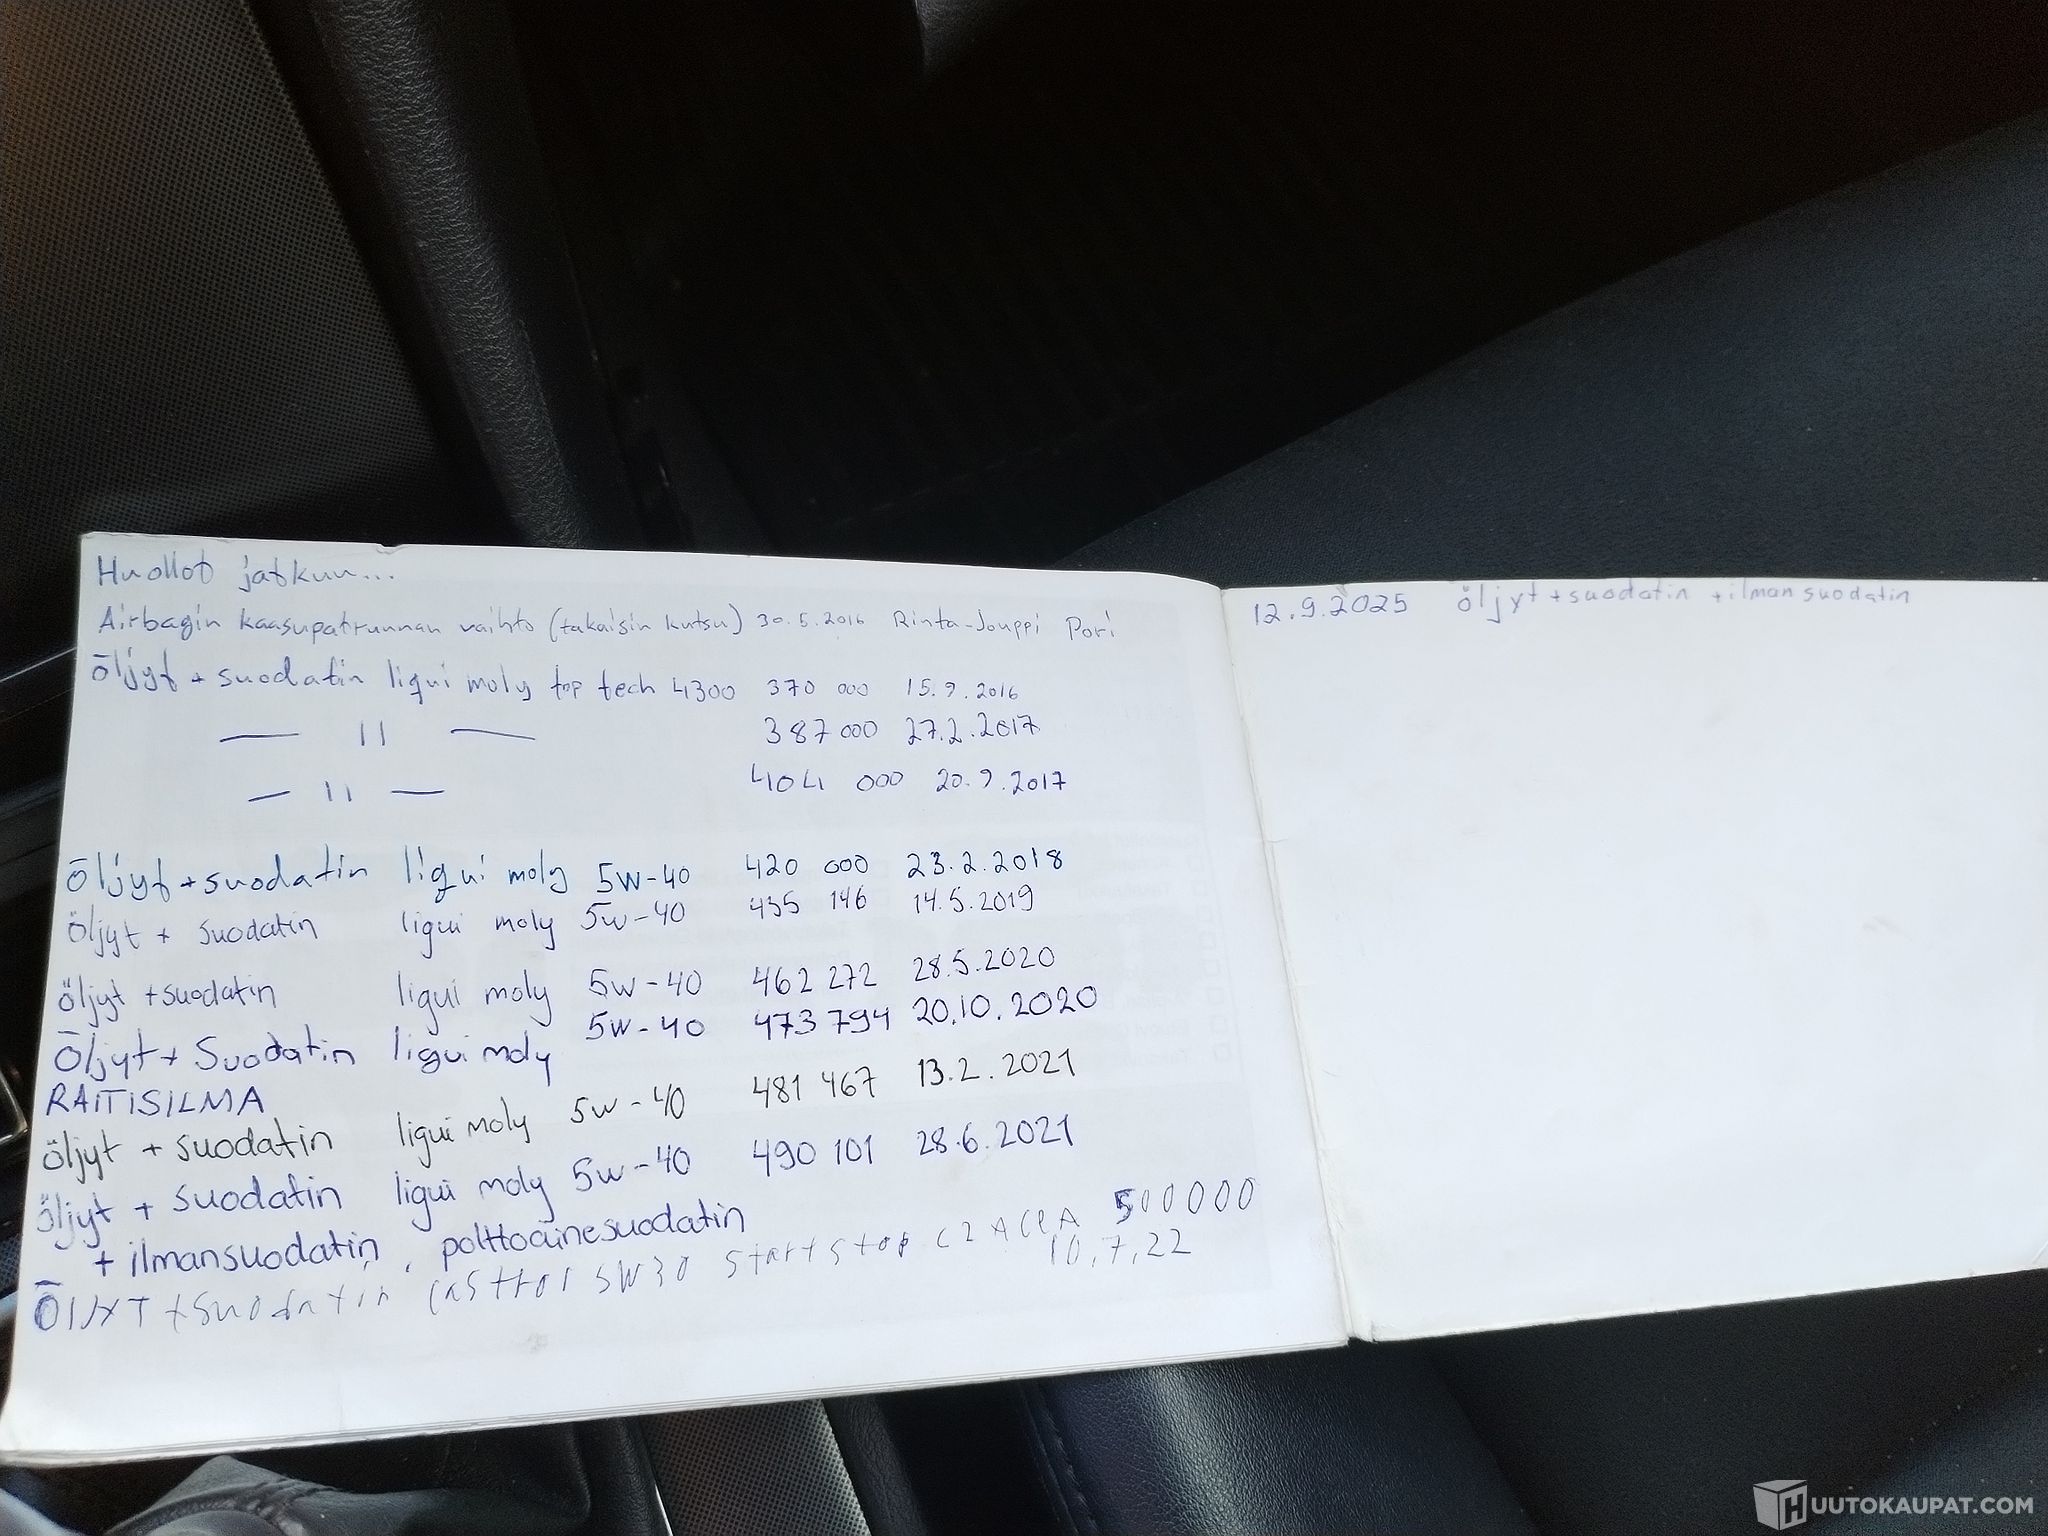 Huollot jatkuu...
Airbagin kaasupatrunnan vaihto (takaisin kutsu) 30.5.2016 Rinta-Jouppi Pori
Öljyt + suodatin liqui moly top tech 4300 370 000 15.9.2016
— 11 — 387 000 27.2.2017
— 11 — 404 000 20.9.2017
Öljyt + suodatin liqui moly 5W-40 420 000 23.2.2018
Öljyt + suodatin liqui moly 5w-40 435 146 14.5.2019
Öljyt + suodatin liqui moly 5w-40 462 272 28.5.2020
Öljyt + Suodatin liqui moly 5W-40 473 794 20.10.2020
RAITISILMA
Öljyt + suodatin liqui moly 5w-40 481 467 13.2.2021
Öljyt + suodatin liqui moly 5w-40 490 101 28.6.2021
+ ilmansuodatin, polttoainesuodatin
ÖlJYT + suodatin castrol 5W30 start stop C2 ACEA 500000
10,7,22
12.9.2025 öljyt + suodatin + ilmansuodatin
HUUTOKAUPAT.COM